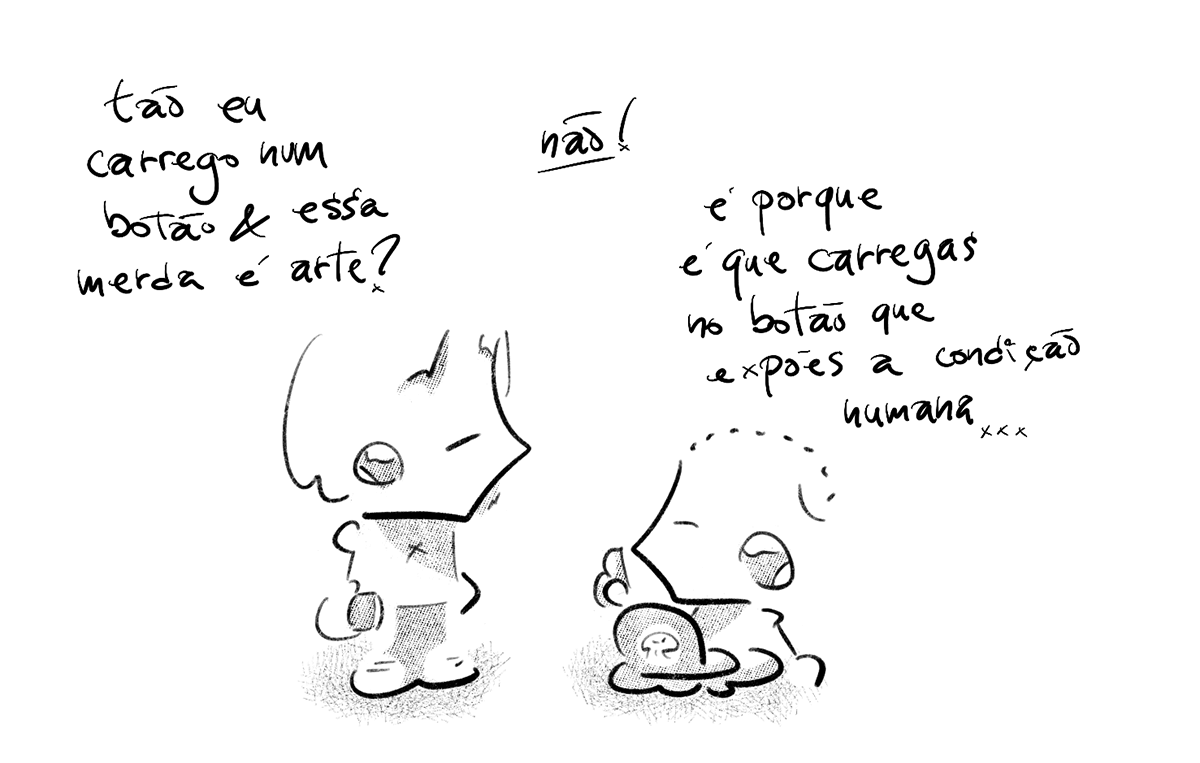 tão eu
carrego num
botão & essa
merda é arte?
não!
é porque
é que carregas
no botão que
expões a condição
humana...